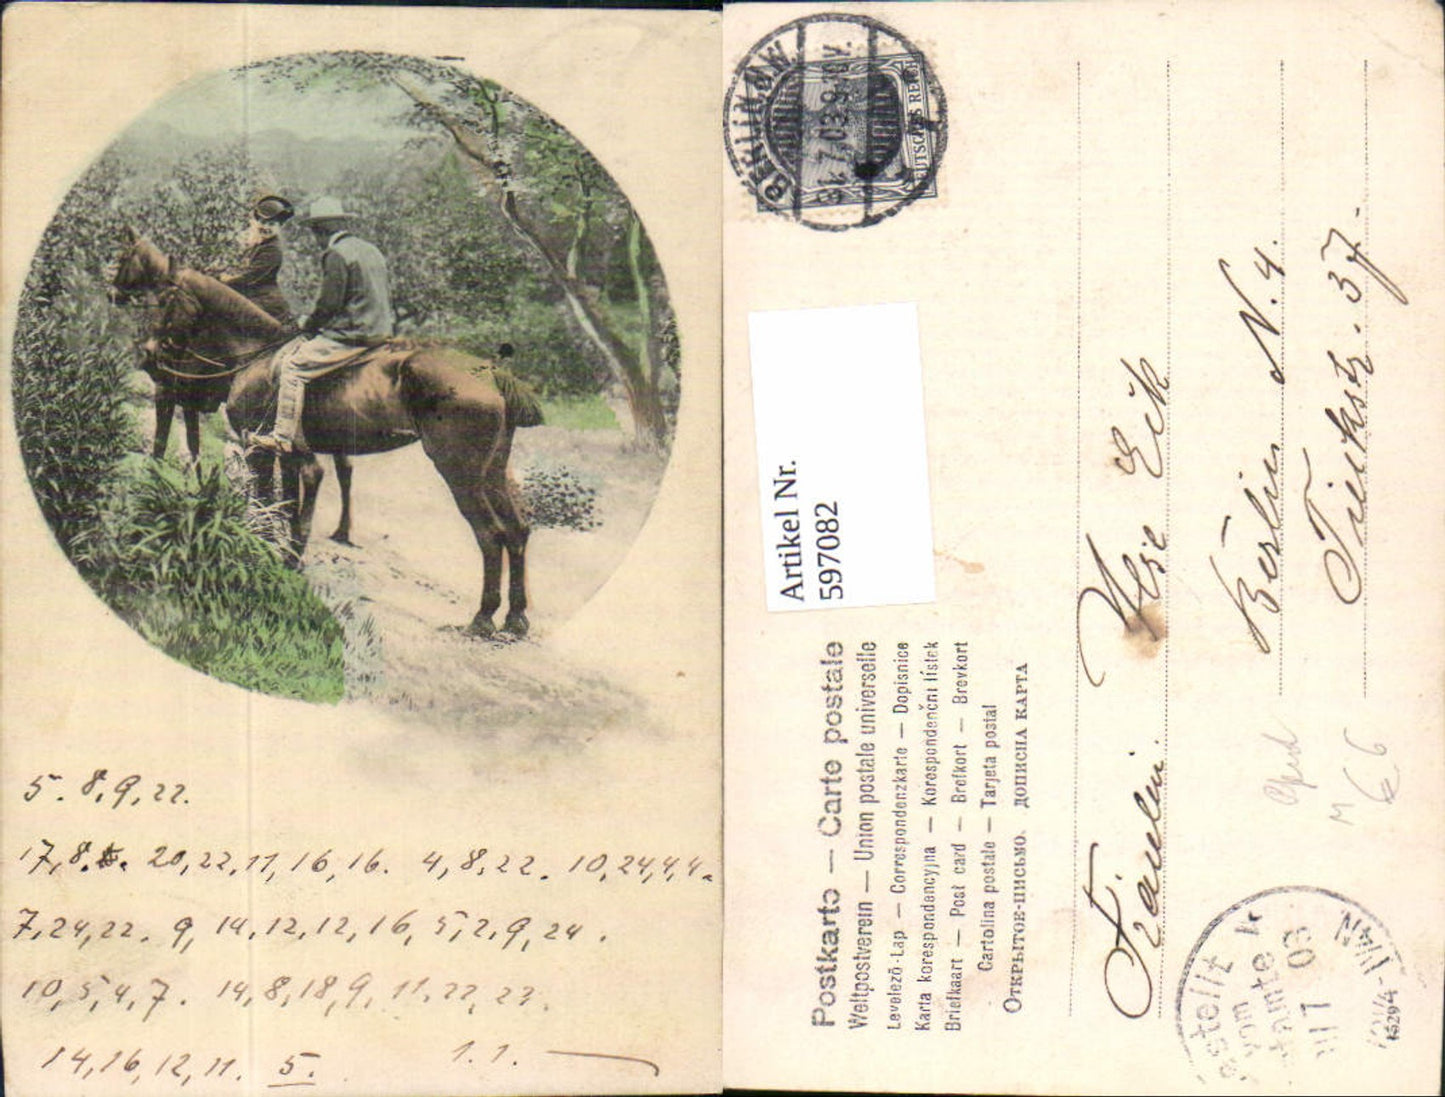 5. 8, 9, 22.
17, 8. 20, 22, 11, 16, 16. 4, 8, 22. 10, 24, 4, 4.
7, 24, 22. 9, 14, 12, 12, 16, 5, 2, 9, 24.
10, 5, 4, 7. 14, 8, 18, 9, 11, 22, 23.
14, 16, 12, 11. 5. 1. 1.
BERLIN N.W.
7.03.9-10V.
DEUTSCHES REICH
Artikel Nr.
597082
Postkarte — Carte postale
Weltpostverein — Union postale universelle
Levelező-Lap — Correspondenzkarte — Dopisnice
Karta korespondencyjna — Korespondenční lístek
Briefkaart — Post card — Brefkort — Brevkort
Cartolina postale — Tarjeta postal
Открытое-письмо. ДОПИСНА КАРТА
Fräulein Ilse Eick
Berlin N. 4.
Tieckstr. 37.
M 6.6
Bestellt
vom
Postamte
7 03
15294